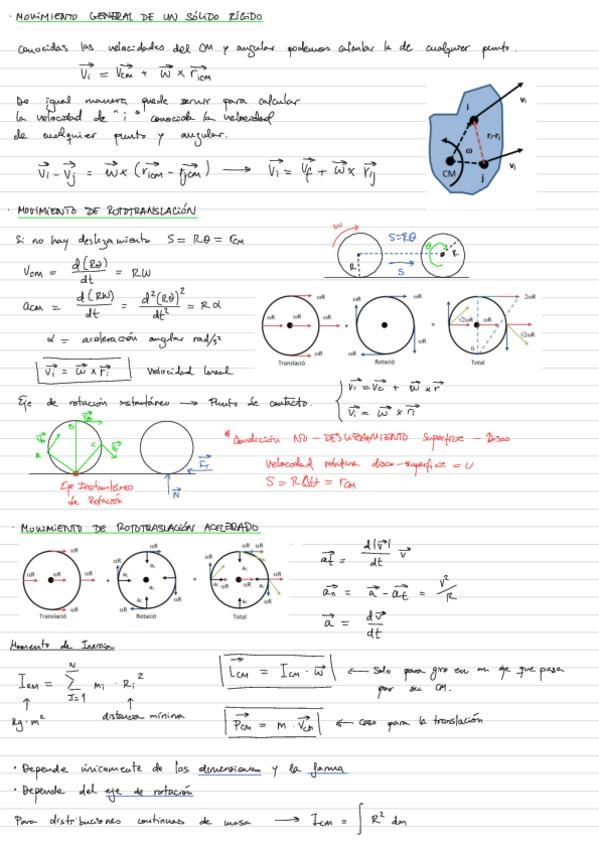 · MOVIMIENTO GENERAL DE UN SÓLIDO RÍGIDO
Conocidas las velocidades del CM y angular podemos calcular la de cualquier punto.
Vi = Vcm + ω × ricm
De igual manera puede servir para calcular
la velocidad de "i" conocida la velocidad
de cualquier punto y angular.
i
vi
ri-rj
ω
CM
j
vi
Vi - Vj = ω × (ricm - rjcm) → Vi = Vj + ω × rij
· MOVIMIENTO DE ROTOTRANSLACIÓN
Si no hay deslizamiento S = Rθ = rcm
ω
S=Rθ
R
S
θ
R
Vcm = d(Rθ)/dt = RW
acm = d(RW)/dt = d²(Rθ)²/dt² = Rα
α = aceleración angular rad/s²
Vi = ω × ri velocidad lineal
ωR ωR ωR ωR 2ωR
ωR ωR ωR √2ωR ωR √2ωR
ωR ωR 0
Translació Rotació Total
Eje de rotación instantáneo → Punto de contacto.
Vi = Vc + ω × r
Vi = ω × ri
A
B
C
Eje Instantáneo
de Rotación
Fr
N
* Condición NO-DESLIZAMIENTO Superfice - Disco
Velocidad relativa disco-superfice = 0
S = RΔθ = rCM
· MOVIMIENTO DE ROTOTRASLACIÓN ACELERADO
αR αR αR αR
αR αR ac αR αR ac
Translació Rotació Total
at = d|v|/dt v
an = a - at = v²/R
a = dv/dt
Momento de Inercia
Icm = Σ N I=1 mi · Ri²
kg·m²
distancia mínima
Lcm = Icm · ω ← Solo para giro en un eje que pasa
por su CM.
Pcm = m · Vcm ← caso para la translación
· Depende únicamente de las dimensiones y la forma
· Depende del eje de rotación
Para distribuciones continuas de masa → Icm = ∫ R² dm